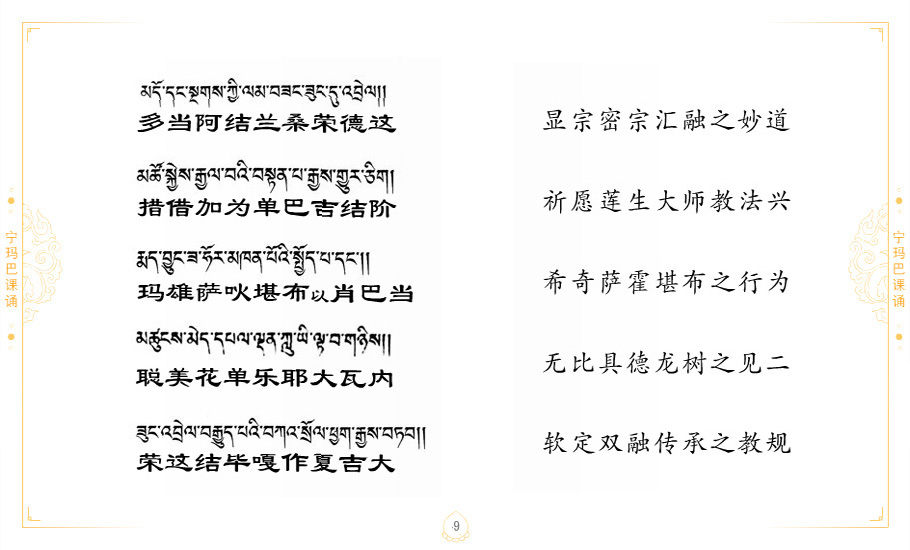 མདོ་དང་སྔགས་ཀྱི་ལམ་བཟང་ཟུང་དུ་འབྲེལ།།
多当阿结兰桑荣德这
མཚོ་སྐྱེས་རྒྱལ་བའི་བསྟན་པ་རྒྱས་གྱུར་ཅིག།
措借加为单巴吉结阶
རྨད་བྱུང་ཟ་ཧོར་མཁན་པོའི་སྤྱོད་པ་དང་།།
玛雄萨吙堪布以肖巴当
མཚུངས་མེད་དཔལ་ལྡན་ཀླུ་ཡི་ལྟ་བ་གཉིས།།
聪美花单乐耶大瓦内
ཟུང་འབྲེལ་བརྒྱུད་པའི་བཀའ་སྲོལ་ཕྱག་རྒྱས་བཏབ།།
荣这结毕嘎作夏吉大
显宗密宗汇融之妙道
祈愿莲生大师教法兴
希奇萨霍堪布之行为
无比具德龙树之见二
软定双融传承之教规
宁玛巴课诵
宁玛巴课诵
·9